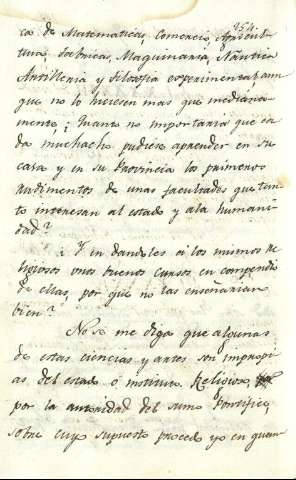 254.
ca de Matematicas, Comercio, Agricul-
tura fabricas, Maquinaria, Náutica
Artilleria y Filosofia experimental aun
que no lo hiciesen mas que mediana-
mente; Quanto no importaria que ca
da muchacho pudiese aprender en su
casa y en su Provincia los primeros
rudimentos de unas facultades que tan-
to interesan al estado y ala humani-
dad?
¿Y en dandoles á los mismos Re
ligiosos unos buenos cursos en compendio
de ellas, por que no las enseñarian
bien?
No se me diga que algunas
de estas ciencias y artes son impropi-
as del estado ó instituto Religioso,
por la autoridad del sumo Pontifice,
sobre cuyo supuesto procedo yo en quan